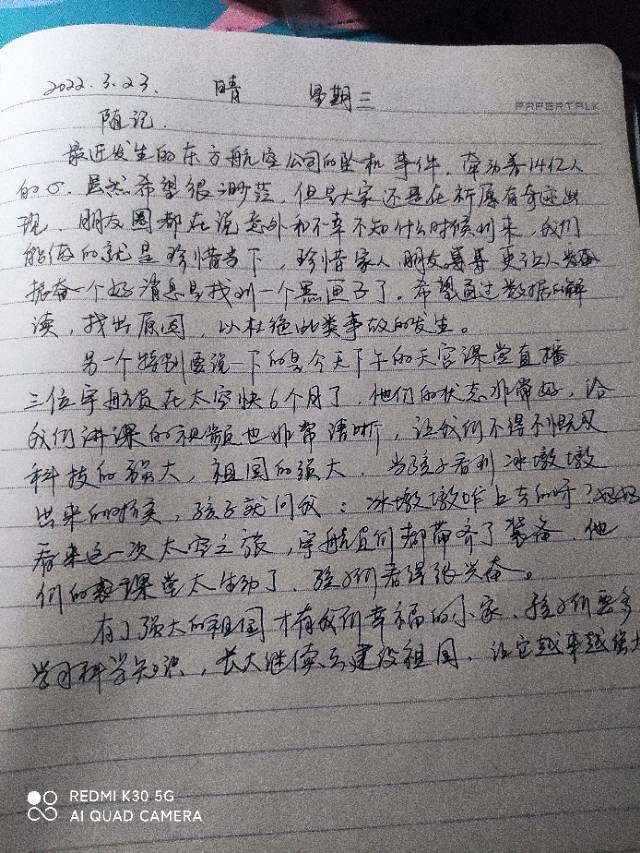 2022.3.23. 晴 星期三
PAPERTALK
随记.
最近发生的东方航空公司的坠机事件,牵动着14亿人
的心.虽然希望很渺茫,但是大家还是在祈愿有奇迹出
现.朋友圈都在说意外和不幸不知什么时候到来,我们
能做的就是珍惜当下,珍惜家人 朋友 更让人
振奋一个好消息是找到一个黑匣子了.希望通过数据的解
读,找出原因,以杜绝此类事故的发生。
另一个特别要说一下的是今天下午的天宫课堂直播.
三位宇航员在太空快6个月了,他们的状态非常好,给
我们讲课的视频也非常清晰,让我们不得不佩服
科技的强大,祖国的强大.当孩子看到冰墩墩
出来的时候,孩子就问我:冰墩墩咋上去的呀?妈妈
看来这一次太空之旅,宇航员们都带齐了装备.他
们的 课堂太生动了,孩子们看得很兴奋。
有了强大的祖国才有我们幸福的小家.孩子们要多
学习科学知识,长大继续去建设祖国.让它越来越强大
REDMI K30 5G
AI QUAD CAMERA